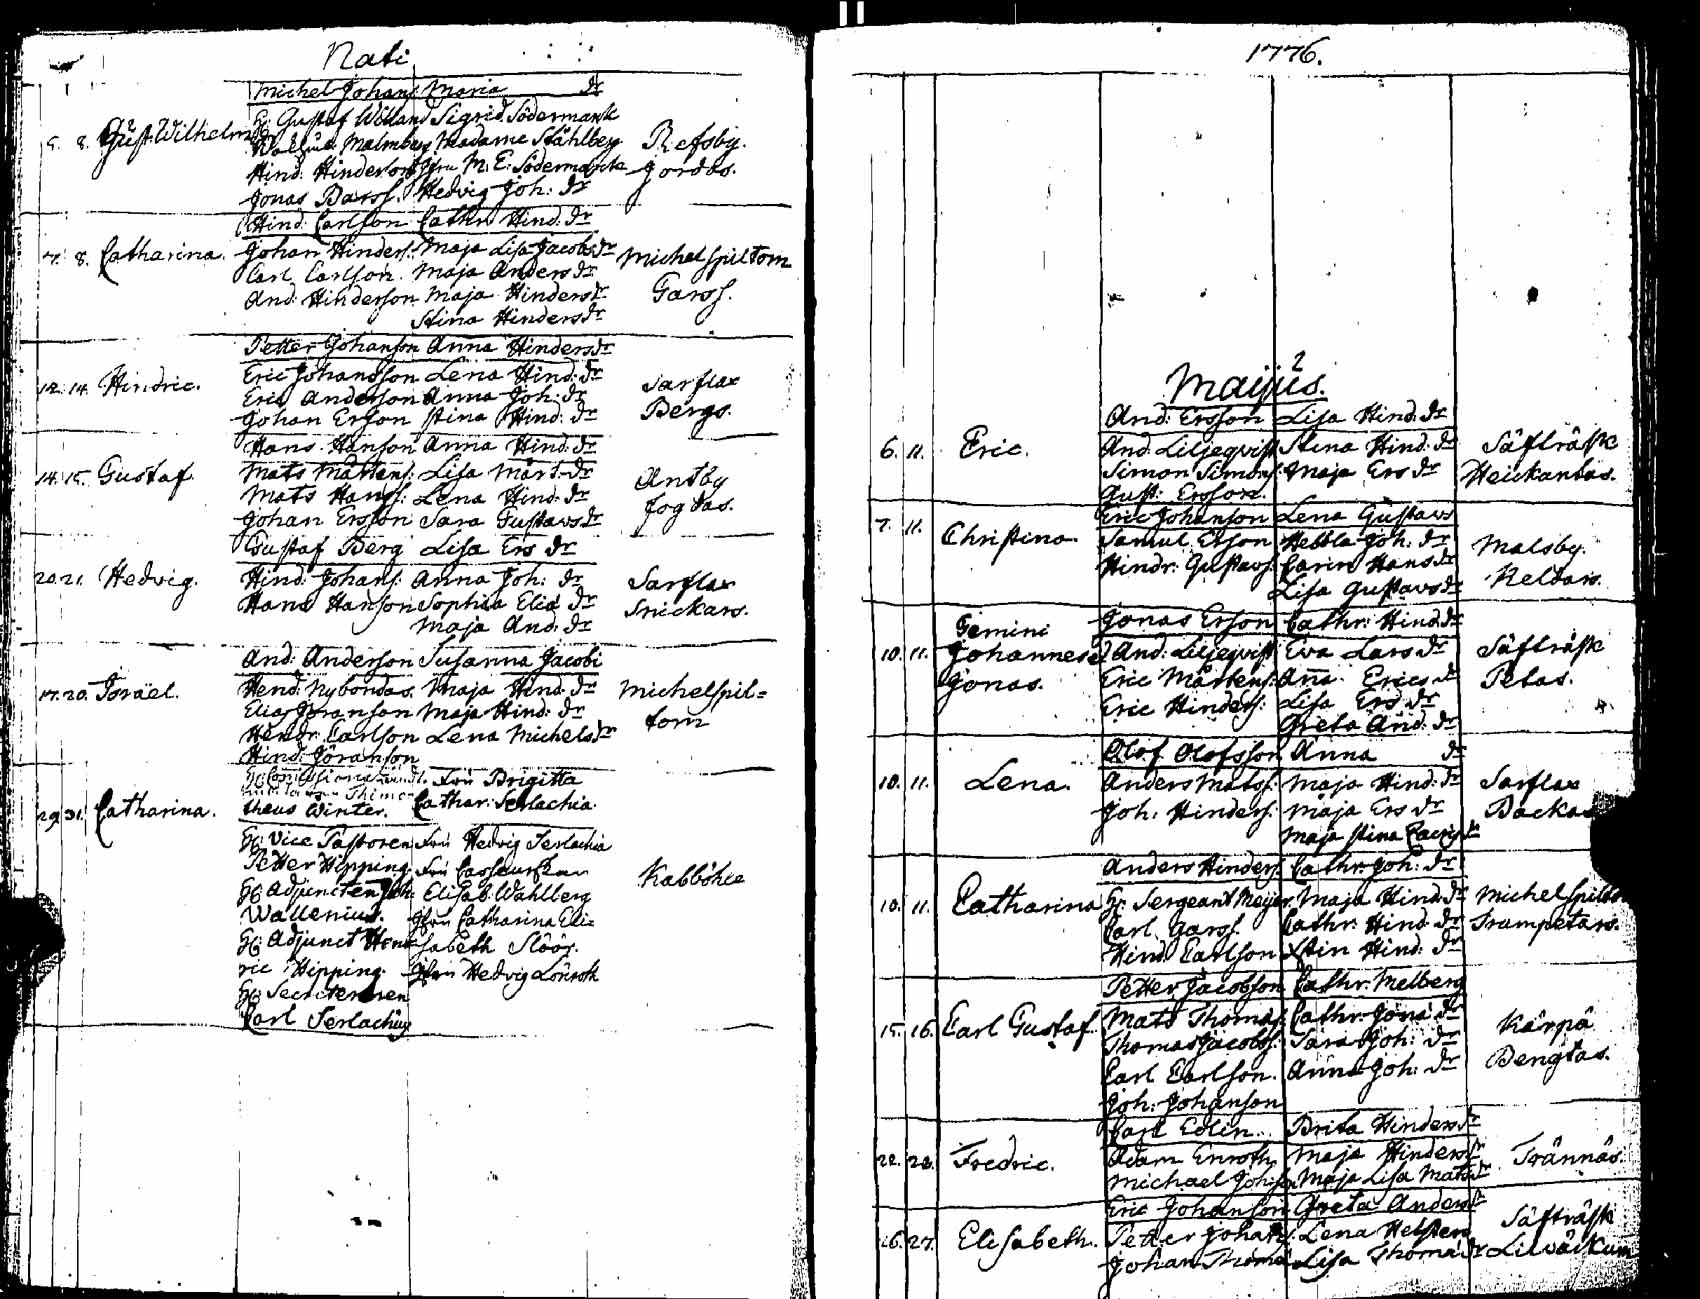 Nati
Michel Johans Maria dr
5. 8. Gust. Wilhelm Hr Gustaf Willand Sigrid Södermark
Malmberg Madame Ståhlberg Refsby
Hind. Hinderson Jfru M. E. Södermarck Jordas.
Jonas Barss. Hedvig Joh: dr
Hind. Carlson Cathr. Hind. dr
7. 8. Catharina. Johan Hinders. Maja Lisa Jacobsdr Michelspiltom
Carl Carlson. Maja Anders dr
And. Hinderson Maja Hindersdr Garss.
Stina Hindersdr
Petter Johanson Anna Hindersdr
12. 14. Hindric. Eric Johansson Lena Hind. dr Sarflax
Eric Anderson Anna Joh: dr Bergs.
Johan Erson Stina Hind: dr
Hans Hanson Anna Hind: dr
14. 15. Gustaf. Mats Mårtens: Lisa Mårt. dr Andby
Mats Hans: Lena Hind: dr fogdas.
Johan Ersson Sara Gustavs dr
Gustaf Berg Lisa Ers dr
20. 21. Hedvig. Hind. Johans: Anna Joh: dr Sarflax
Hans Hanson Sophia Elia dr Snickars.
Maja And: dr
And: Anderson Susanna Jacobi
17. 20. Israël. Hend. Nybondas. Maja Hind: dr Michelspil=
Elias Joranson Maja Hind: dr tom
Hendr. Carlson Lena Michelsdr
Hind. Jöranson
Fru Brigitta
Cathar: Serlachia.
29. 31. Catharina. theus Winter.
Hr Vice Pastoren Fru Hedvig Serlachia
Petter Hipping. Fru
Hr Adjuncten Joh: Elisab. Wahlberg Kabböhle
Wallenius. Jfru Catharina Eli=
Hr Adjunct Hen= sabeth Slöör.
ric Hipping. Jfru Hedvig Lönroth
Hr Secreteraren
Carl Serlachius
1776.
Maijus.
And: Ersson Lisa Hind. dr
6. 11. Eric. And. Liljeqvist Stina Hind: dr Säfträsk
Simon Simons: Maja Ers dr Heickantas.
Gust: Ersson.
Eric Johanson Lena Gustavs
7. 11. Christina. Samul Erson Hebbla Joh: dr Malsby
Hindr. Gustavs. Carin Hans dr Neldars.
Lisa Gustavsdr
Gemini Jonas Erson Cathr: Hind. dr
10. 11. Johannes & And. Liljeqvist Eva Lars dr Säfträsk
Jonas. Eric Mårtens. Aña Erics dr Petas.
Eric Hinders: Lisa Ers dr
Greta And. dr
Olof Olofsson Anna dr
10. 11. Lena. Anders Mats: Maja Hind: dr Sarflax
Joh: Hinders: Maja Ers dr Backas
Maja Stina
Anders Hinders: Cathr. Joh: dr
10. 11. Catharina Hr Sergeant Meijer. Maja Hind. dr Michelspiltom
Carl Garss. Cathr. Hind: dr Trumpetars.
Hind Carlson Stin Hind: dr
Petter Jacobson Cathr. Melberg
15. 16. Carl Gustaf. Mats Thomas. Cathr. Jöns dr Kärpä
Thomas Jacobs. Sara Joh: dr Bengtas.
Carl Carlson. Anna Joh: dr
Joh: Johanson
Carl Edlin. Brita Hindersdr
22. 23. Fredric. Adam Enroth, Maja Hindersdr Trännäs.
Michael Johson Maja Lisa Matsdr
Eric Johanson Greta Andersdr
26. 27. Elisabeth. Petter Johans: Lena Helsten Säfträsk
Johan Thoma Lisa Thoma dr